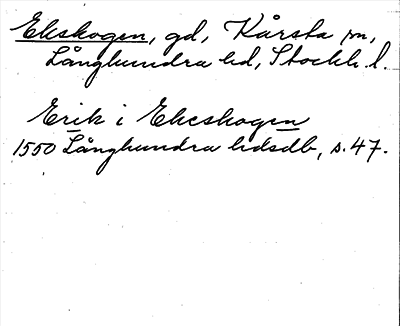 Ekskogen, gd, Kårsta sn,
Långhundra hd, Stockh. l.
Erik i Ekeskogen
1550 Långhundra hdsdb, s. 47.